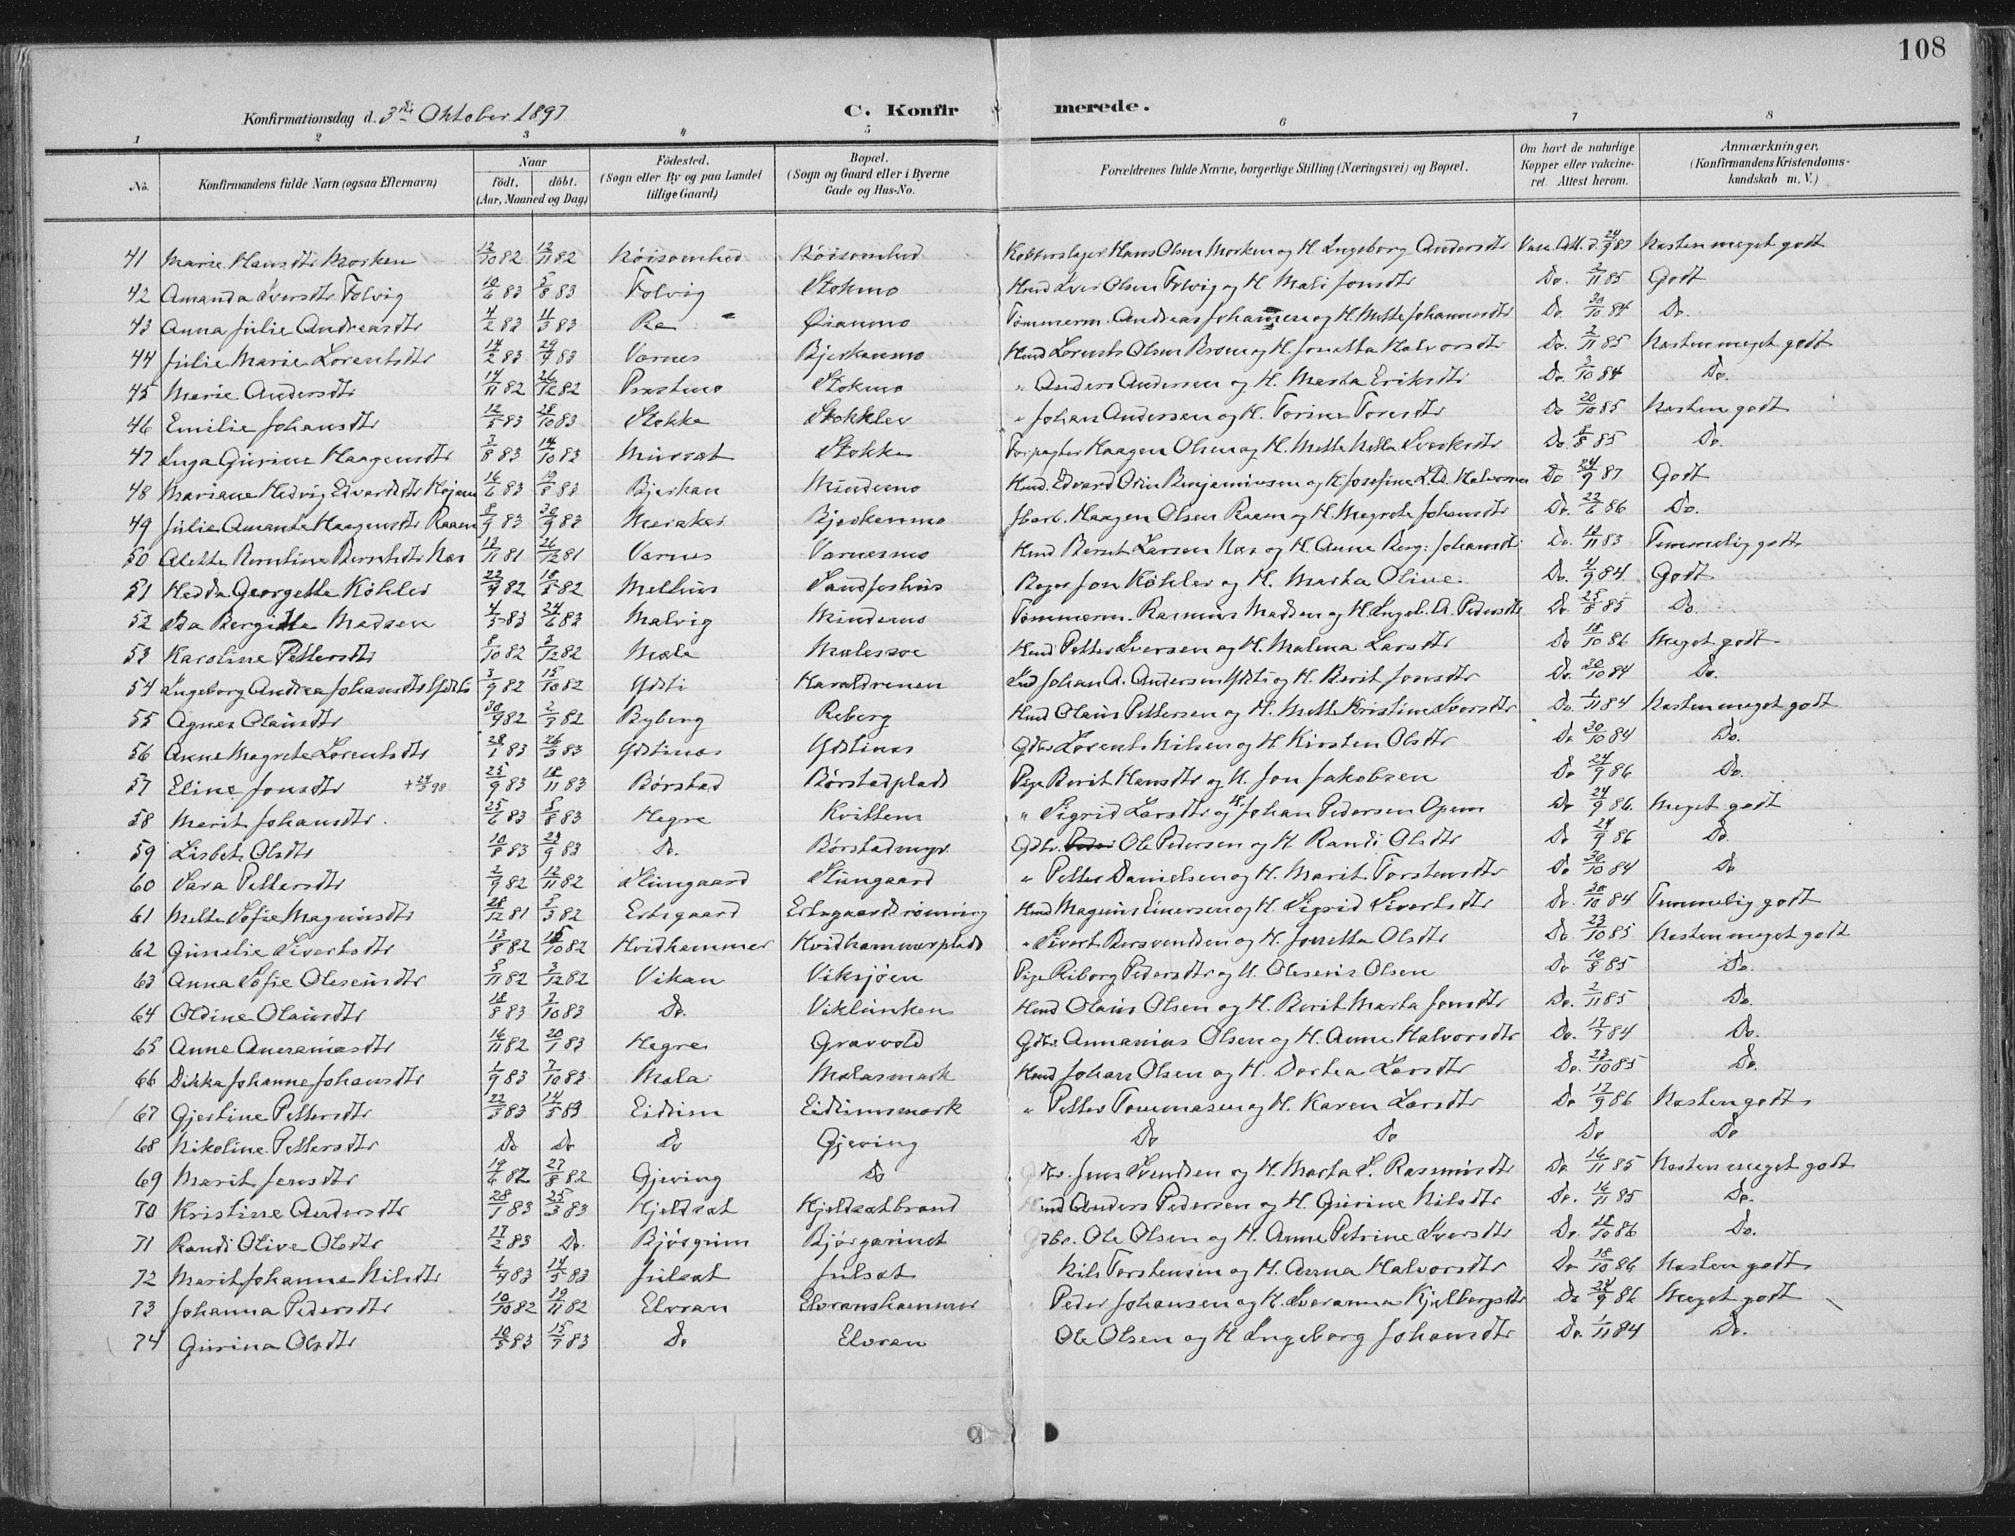 108
Konfirmationsdag d. 3die Oktober 1897 C. Konfirmerede.
1 2 3 4 5 6 7 8
No. Konfirmandens fulde Navn (ogsaa Efternavn) Naar født. døbt. (Aar, Maaned og Dag) Fødested. (Sogn eller By og paa Landet tillige Gaard) Bopæl. (Sogn og Gaard eller i Byerne Gade og Hus-No. Forældrenes fulde Navne, borgerlige Stilling (Næringsvei) og Bopæl. Om havt de naturlige Kopper eller vakcineret. Attest herom. Anmærkninger, (Konfirmandens Kristendomskundskab m. V.)
41 Marie Hansdtr Morken 12/10 82 12/11 82 Nøisomhed Nøisomhed Kobberslager Hans Olsen Morken og H. Ingeborg Andersdtr Vacc. Att. d. 24/9 87 Næsten meget godt
42 Amanda Iversdtr Folvig 10/6 83 5/8 83 Folvig Stokmo Hmd Iver Olsen Folvig og H. Mali Jonsdtr Do. 2/11 85 Godt
43 Anna Julie Andreasdtr 4/2 83 11/3 83 Re Øianmo Tømmerm. Andreas Johansen og H. Mette Johannesdtr Do. 30/10 84 Do.
44 Julie Marie Lorentsdtr 14/2 83 29/4 83 Værnes Bjerkanmo Hmd Lorents Olsen og H. Jonetta Halvorsdtr Do. 2/11 85 Næsten meget godt
45 Marie Andersdtr 14/11 82 26/12 82 Præstmo Stokmo " Anders Andersen og H. Marta Eriksdtr Do. 2/10 84 Do.
46 Emilie Johansdtr 12/5 83 28/10 83 Stokke Stokklev " Johan Andersen og H. Torine Toresdtr Do 20/10 85 Næsten godt
47 Inga Gurine Haagensdtr 3/8 83 14/10 83 Stokke Forpagter Haagen Olsen og H. Mette Do. 8/8 85 Do.
48 Mariane Hedvig Edvardsdtr 16/6 83 12/8 83 Bjerkan Mindemo Hmd. Edvard Odin Benjaminsen og H. Josefine Do 24/9 87 Godt
49 Julie Amanda Haagensdtr Raaen 8/9 83 30/9 83 Meraker Bjerkanmo Haagen Olsen Raaen og H. Magrete Johansdtr Do. 22/6 86 Do.
50 Alette Berntine Berntsdtr Næs 12/11 81 26/12 81 Værnes Værnesmo Hmd Bernt Larsen Næs og H. Anne Berg: Johansdtr Do. 12/11 83 Temmelig godt
51 Hedda Georgette Köhler 22/4 82 18/5 82 Melhus Sandferhus Bager Jon Köhler og H. Marta Oline Do. 4/9 84 Godt
52 Ida Bergitte Madsen 4/5 83 24/6 83 Malvig Mindemo Tømmerm. Rasmus Madsen og H. Ingeb. A. Pedersdtr Do. 25/8 85 Do.
53 Karoline Pettersdtr 8/10 82 3/12 82 Mæla Hmd Petter Iversen og H. Malena Larsdtr Do 18/10 86 Meget godt
54 Ingeborg Andrea Johansdtr Ydsti 3/9 82 15/10 82 Ydsti Haraldreinen Johan A. Andersen Ydsti og H. Berit Jonsdtr Do. 30/10 84 Do.
55 Agnes Olausdtr 30/4 82 2/7 82 Byberg Reberg Hmd Olaus Pettersen og H. Mette Kristine Iversdtr Do. 1/11 84 Næsten meget godt
56 Anne Magrete Lorentsdtr 28/1 83 26/3 83 Ydstines Ydstines Gdbr. Lorents Nilsen og H. Kirsten Olsdtr Do 30/10 84 Do.
57 Eline Jonsdtr + 24/5 98 25/9 83 18/11 83 Børstad Børstadplads Pige Berit Hansdtr og U. Jon Jakobsen Do 24/9 86 Do.
58 Marit Johansdtr. 25/6 83 5/8 83 Hegre Kvittem " Sigrid Larsdtr og U. Johan Pedersen Opem Do 24/9 86 Meget godt
59 Lisbet Olsdtr 10/8 83 23/9 83 Do. Børstadmyr Gdbr. Ole Pedersen og H. Randi Olsdtr Do 24/9 86 Do.
60 Sara Pettersdtr 2/9 82 12/11 82 Skungaard Skungaard " Petter Danielsen og H. Marit Torstensdtr Do 30/10 84 Do
61 Mette Sofie Magnusdtr 28/12 81 5/3 82 Ertsgaard Ertsgaardsrønning Hmd Magnus Einersen og H. Sigrid Sivertsdtr Do. 30/10 84 Temmelig godt
62 Gunelie Sivertsdtr 13/8 82 15/10 82 Hvidhammer Hvidhammerplads " Sivert Bersvendsen og H. Jonetta Olsdtr Do. 23/10 85 Næsten meget godt
63 Anna Sofie Oleseusdtr 5/11 82 3/12 82 Vikan Viksjøen Pige Riborg Pedersdtr og U. Oleseus Olsen Do 10/8 85 Do.
64 Oldine Olausdtr 18/8 83 7/10 83 Do. Viklunken Hmd Olaus Olsen og H. Berit Marta Jonsdtr Do. 2/11 85 Do.
65 Anne Annaniasdtr 16/11 82 20/1 83 Hegre Gravvold Gdbr Annanias Olsen og H. Anne Halvorsdtr Do. 17/7 84 Do.
66 Dikka Johanne Johansdtr 1/9 83 7/10 83 Mæla Mælasmark Hmd Johan Olsen og H. Dortea Larsdtr Do. 23/10 85 Do.
67 Gjertine Pettersdtr 22/3 83 14/5 83 Eidum Eidumsmark " Petter Tommasen og H. Karen Larsdtr Do 17/9 86 Næsten godt
68 Nikoline Pettersdtr Do Do Do Gjeving Do Do Do Do
69 Marit Jensdtr 19/6 82 27/8 82 Gjeving Do Gdbr. Jens Svendsen og H. Marta S. Rasmusdtr Do. 16/11 85 Næsten meget godt
70 Kristine Andersdtr 28/1 83 25/3 83 Hjeldsæt Hjeldsætbrand Hmd Anders Pedersen og H. Gurine Nilsdtr Do. 16/11 85 Do.
71 Randi Olive Olsdtr 17/2 83 Do. Bjørgum Gdbr. Ole Olsen og H. Anne Petrine Iversdtr Do. 18/10 86 Do.
72 Marit Johanne Nilsdtr 6/4 83 14/5 83 Julsæt Julsæt Nils Torstensen og H. Anna Halvorsdtr Do. 18/10 86 Næsten godt
73 Johanna Pedersdtr 10/10 82 19/11 82 Elvran Elvranshammer Peder Johansen og H. Iveranna Kjelbergsdtr Do 24/9 86 Meget godt
74 Gurina Olsdtr 10/5 83 15/7 83 Do Elvran Ole Olsen og H Ingeborg Johansdtr Do. 1/11 84 Do.